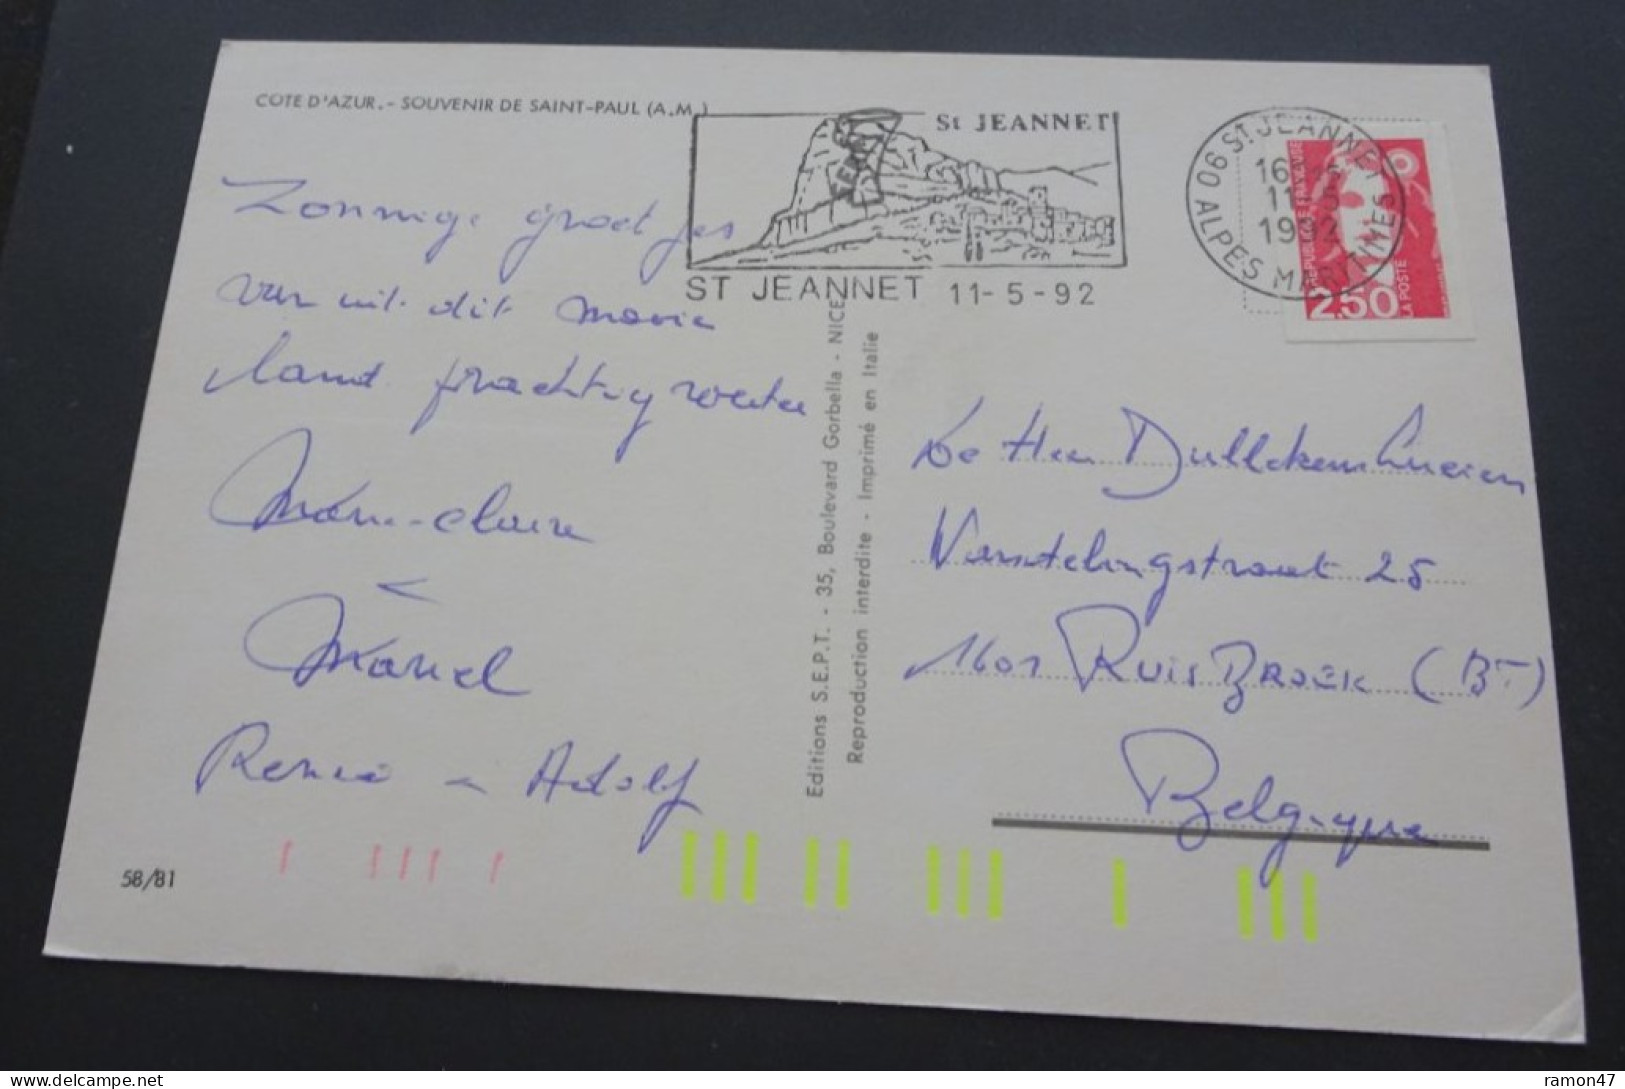 COTE D'AZUR. - SOUVENIR DE SAINT-PAUL (A.M.)
St JEANNET
ST JEANNET 11-5-92
St JEANNET
16
11-5
1992
90 ALPES MARITIMES
REPUBLIQUE FRANÇAISE
2,50
LA POSTE
Zonnige groetjes
van uit dit mooie
land prachtig weder
Marie-claire
Marcel
Renée en Adolf
58/81
Editions S.E.P.T. - 35, Boulevard Gorbella - NICE
Reproduction interdite - Imprimé en Italie
De Heer Dullekens Lucien
25
1601 RUISBROEK (BT)
Belgique
ramon47